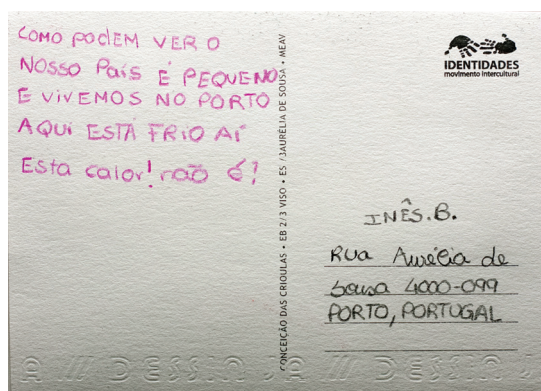 COMO PODEM VER O
NOSSO PAÍS É PEQUENO
E VIVEMOS NO PORTO
AQUI ESTÁ FRIO AÍ
Esta calor! não é?
CONCEIÇÃO DAS CRIOULAS • EB 2/3 VISO • ES /3AURÉLIA DE SOUSA • MEAV
IDENTIDADES
movimento intercultural
INÊS.B.
Rua Aurélia de
Sousa 4000-099
PORTO, PORTUGAL